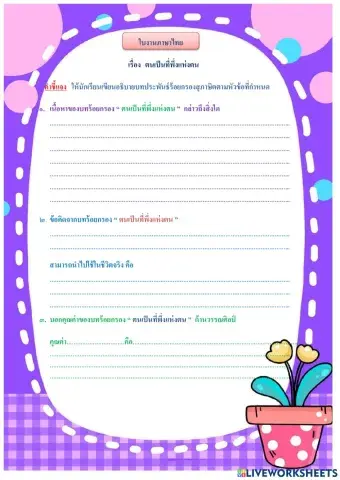 ใบงานภาษาไทย
เรื่อง ตนเป็นที่พึ่งแห่งตน
คำชี้แจง ให้นักเรียนเขียนอธิบายบทประพันธ์ร้อยกรองสุภาษิตตามหัวข้อที่กำหนด
๑. เนื้อหาของบทร้อยกรอง “ ตนเป็นที่พึ่งแห่งตน ” กล่าวถึงสิ่งใด
๒. ข้อคิดจากบทร้อยกรอง “ ตนเป็นที่พึ่งแห่งตน ”
สามารถนำไปใช้ในชีวิตจริง คือ
๓. บอกคุณค่าของบทร้อยกรอง “ ตนเป็นที่พึ่งแห่งตน ” ด้านวรรณศิลป์
คุณค่า..............................คือ..............................
LIVEWORKSHEETS